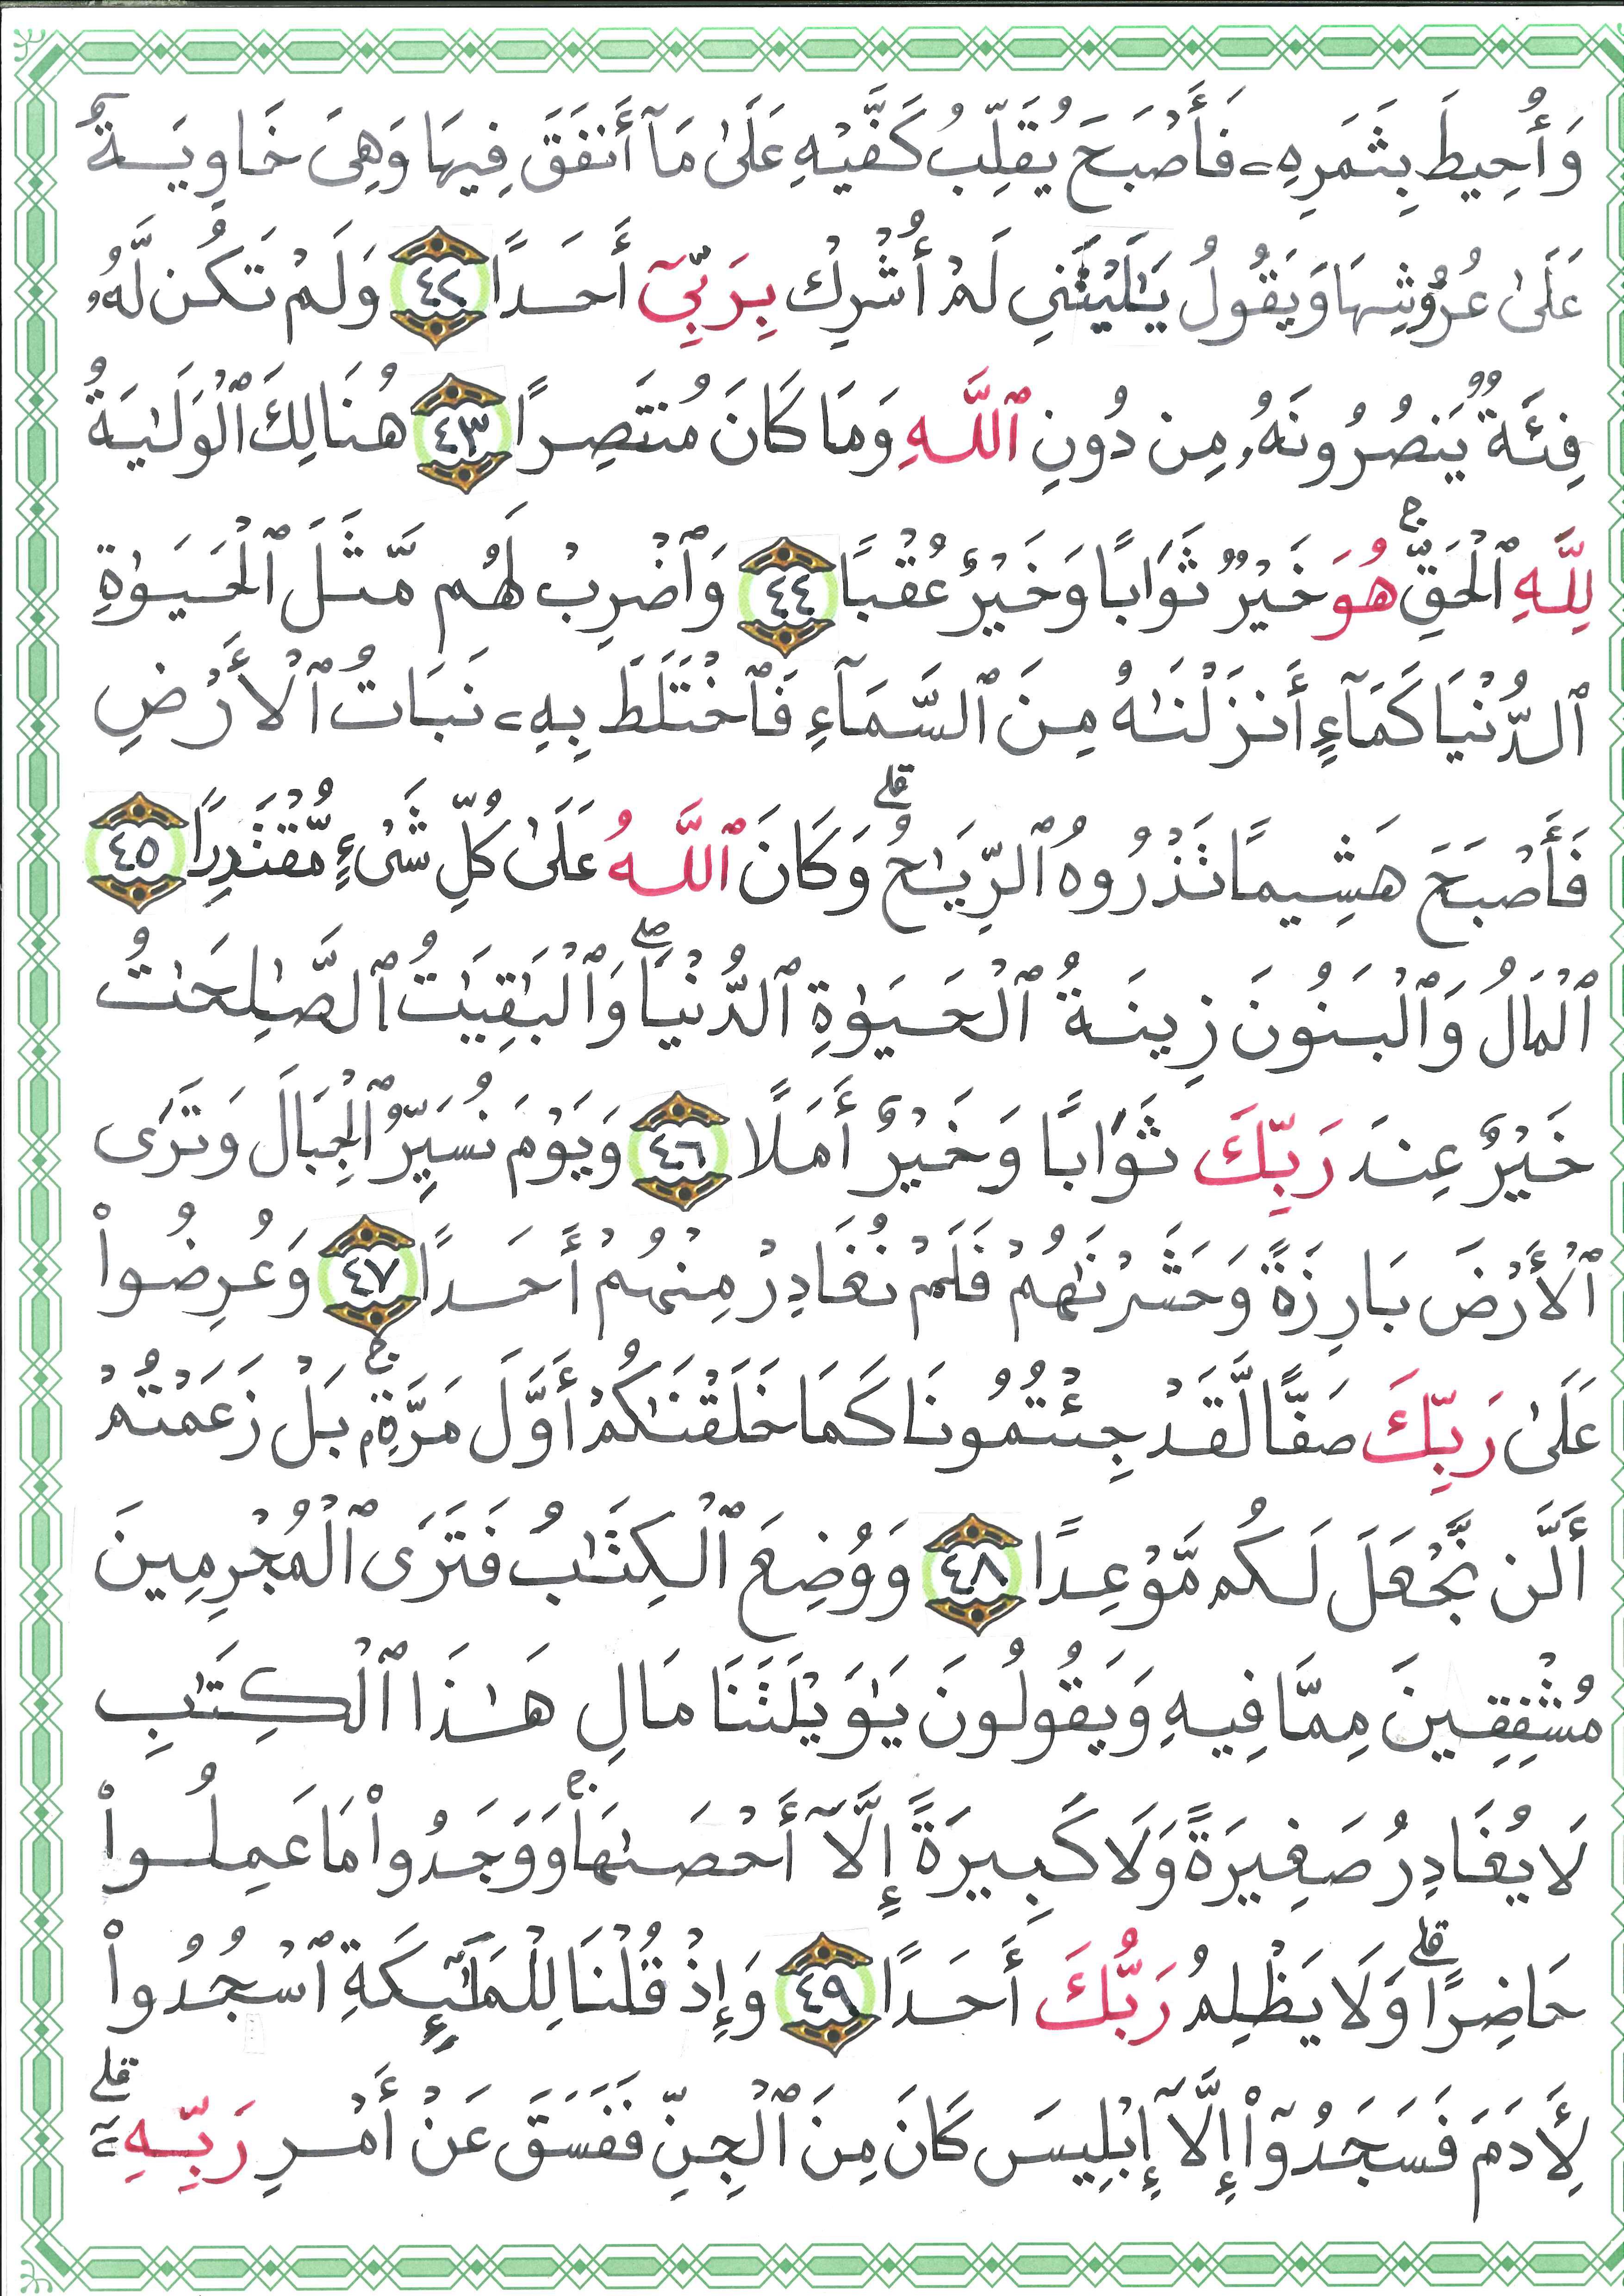 وَأُحِيطَ بِثَمَرِهِۦ فَأَصْبَحَ يُقَلِّبُ كَفَّيْهِ عَلَىٰ مَآ أَنفَقَ فِيهَا وَهِىَ خَاوِيَةٌ
عَلَىٰ عُرُوشِهَا وَيَقُولُ يَـٰلَيْتَنِى لَمْ أُشْرِكْ بِرَبِّىٓ أَحَدًا ٤٢ وَلَمْ تَكُن لَّهُۥ
فِئَةٌ يَنصُرُونَهُۥ مِن دُونِ ٱللَّهِ وَمَا كَانَ مُنتَصِرًا ٤٣ هُنَالِكَ ٱلْوَلَـٰيَةُ
لِلَّهِ ٱلْحَقِّ ۚ هُوَ خَيْرٌ ثَوَابًا وَخَيْرٌ عُقْبًا ٤٤ وَٱضْرِبْ لَهُم مَّثَلَ ٱلْحَيَوٰةِ
ٱلدُّنْيَا كَمَآءٍ أَنزَلْنَـٰهُ مِنَ ٱلسَّمَآءِ فَٱخْتَلَطَ بِهِۦ نَبَاتُ ٱلْأَرْضِ
فَأَصْبَحَ هَشِيمًا تَذْرُوهُ ٱلرِّيَـٰحُ ۗ وَكَانَ ٱللَّهُ عَلَىٰ كُلِّ شَىْءٍ مُّقْتَدِرًا ٤٥
ٱلْمَالُ وَٱلْبَنُونَ زِينَةُ ٱلْحَيَوٰةِ ٱلدُّنْيَا ۖ وَٱلْبَـٰقِيَـٰتُ ٱلصَّـٰلِحَـٰتُ
خَيْرٌ عِندَ رَبِّكَ ثَوَابًا وَخَيْرٌ أَمَلًا ٤٦ وَيَوْمَ نُسَيِّرُ ٱلْجِبَالَ وَتَرَى
ٱلْأَرْضَ بَارِزَةً وَحَشَرْنَـٰهُمْ فَلَمْ نُغَادِرْ مِنْهُمْ أَحَدًا ٤٧ وَعُرِضُوا۟
عَلَىٰ رَبِّكَ صَفًّا لَّقَدْ جِئْتُمُونَا كَمَا خَلَقْنَـٰكُمْ أَوَّلَ مَرَّةٍۭ ۚ بَلْ زَعَمْتُمْ
أَلَّن نَّجْعَلَ لَكُم مَّوْعِدًا ٤٨ وَوُضِعَ ٱلْكِتَـٰبُ فَتَرَى ٱلْمُجْرِمِينَ
مُشْفِقِينَ مِمَّا فِيهِ وَيَقُولُونَ يَـٰوَيْلَتَنَا مَالِ هَـٰذَا ٱلْكِتَـٰبِ
لَا يُغَادِرُ صَغِيرَةً وَلَا كَبِيرَةً إِلَّآ أَحْصَىٰهَا ۚ وَوَجَدُوا۟ مَا عَمِلُوا۟
حَاضِرًا ۗ وَلَا يَظْلِمُ رَبُّكَ أَحَدًا ٤٩ وَإِذْ قُلْنَا لِلْمَلَـٰٓئِكَةِ ٱسْجُدُوا۟
لِـَٔادَمَ فَسَجَدُوٓا۟ إِلَّآ إِبْلِيسَ كَانَ مِنَ ٱلْجِنِّ فَفَسَقَ عَنْ أَمْرِ رَبِّهِۦٓ ۗ